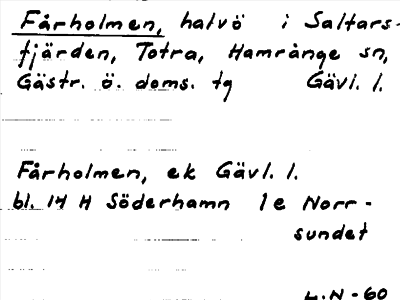 Fårholmen, halvö i Saltars-
fjärden, Totra, Hamrånge sn,
Gästr. ö. doms. tg Gävl. l.
Fårholmen, ek Gävl. l.
bl. 14 H Söderhamn 1e Norr-
sundet
L.N-60